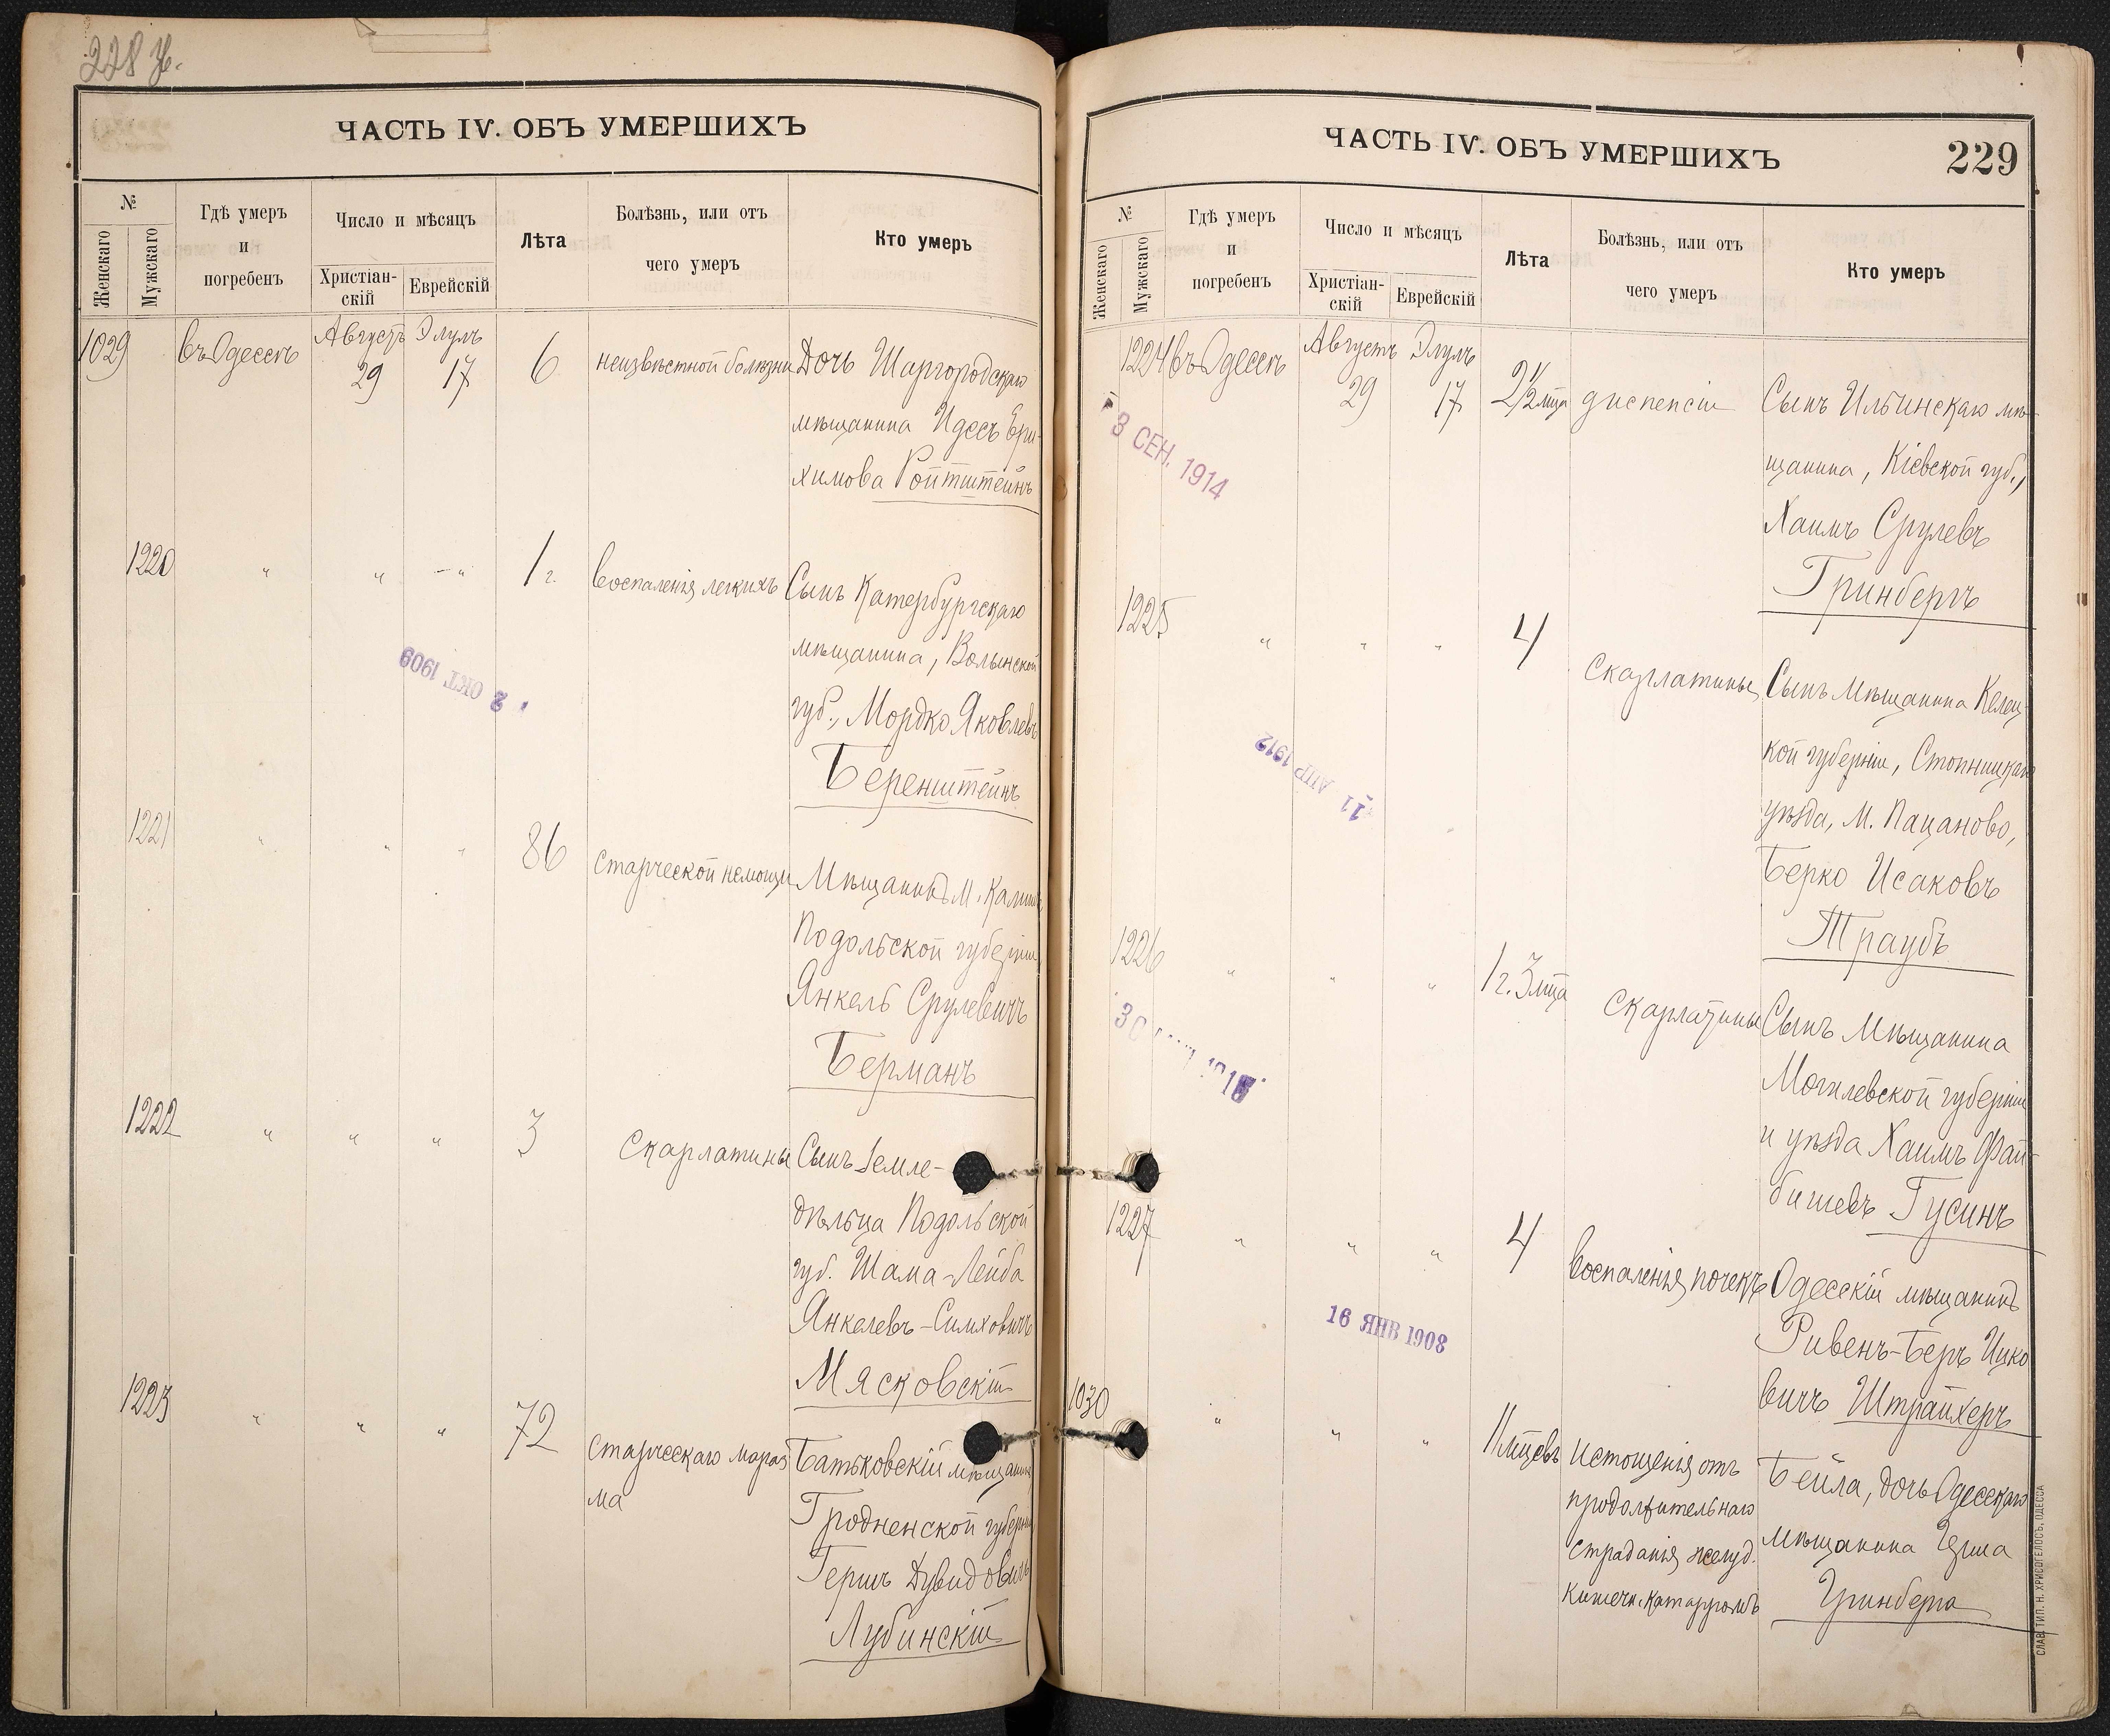 228 у.
ЧАСТЬ IV. ОБЪ УМЕРШИХЪ
№
Женскаго
Мужскаго
Гдѣ умеръ
и
погребенъ
Число и мѣсяцъ
Христіан-
скій
Еврейскій
Лѣта
Болѣзнь, или отъ
чего умеръ
Кто умеръ
1029
въ Одессѣ
Августъ
29
Элулъ
17
6
неизвѣстной болѣзни
Дочь Шаргородскаго
мѣщанина Идесъ Ери-
химова Ройтштейнъ
1220
"
"
-"
1 г.
воспаленія легкихъ
Сынъ Катербургскаго
мѣщанина, Волынской
губ., Мордко Яковлевъ
Беренштейнъ
2 ОКТ 1909
1221
"
"
"
86
старческой немощи
Мѣщанинъ М.
Подольской губерніи
Янкель Срулевичъ
Берманъ
1222
"
"
"
3
Скарлатины
Сынъ Земле-
дѣльца Подольской
губ. Шама-Лейба
Янкелевъ-Симховичъ
Мясковскій
1223
"
"
"
72
Старческаго мараз
ма
Батьковскій мѣщанинъ
Гродненской губерніи
Гершъ Дувидовичъ
Лубинскій
ЧАСТЬ IV. ОБЪ УМЕРШИХЪ
229
№
Женскаго
Мужскаго
Гдѣ умеръ
и
погребенъ
Число и мѣсяцъ
Христіан-
скій
Еврейскій
Лѣта
Болѣзнь, или отъ
чего умеръ
Кто умеръ
1224
въ Одессѣ
Августъ
29
Элулъ
17
2 1/2 мца
диспепсіи
Сынъ Ильинскаго мѣ-
щанина, Кіевской губ.,
Хаимъ Срулевъ
Гринбергъ
3 СЕН. 1914
1225
"
"
"
4
Скарлатины
Сынъ Мѣщанина Келец-
кой губерніи, Стопницкаго
уѣзда, М. Пацаново,
Берко Исаковъ
Траубъ
11 АПР 1912
1226
"
"
"
1 г. 3 мца
Скарлатины
Сынъ Мѣщанина
Могилевской губерніи
и уѣзда Хаимъ Фай-
бишевъ Гусинъ
1227
"
"
"
4
воспаленія почекъ
Одесскій мѣщанинъ
Ривенъ-Беръ Ицко
вичъ Штрайхеръ
16 ЯНВ 1908
1030
"
"
"
11 мцевъ
истощенія отъ
продолжительнаго
страданія желуд.
кишечн. катарромъ
Бейла, дочь Одесскаго
мѣщанина
Гринберга
СЛАВ. ТИП. Н. ХРИСОГЕЛОСЪ, ОДЕССА